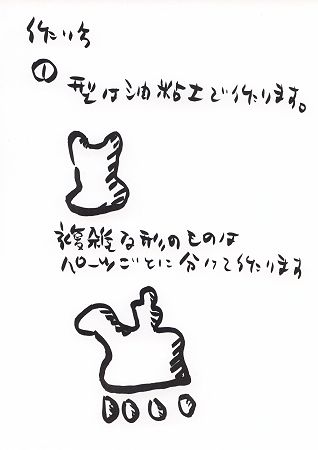 作り方
①
型は油粘土で作ります。
複雑な形のものは
パーツごとに分けて作ります